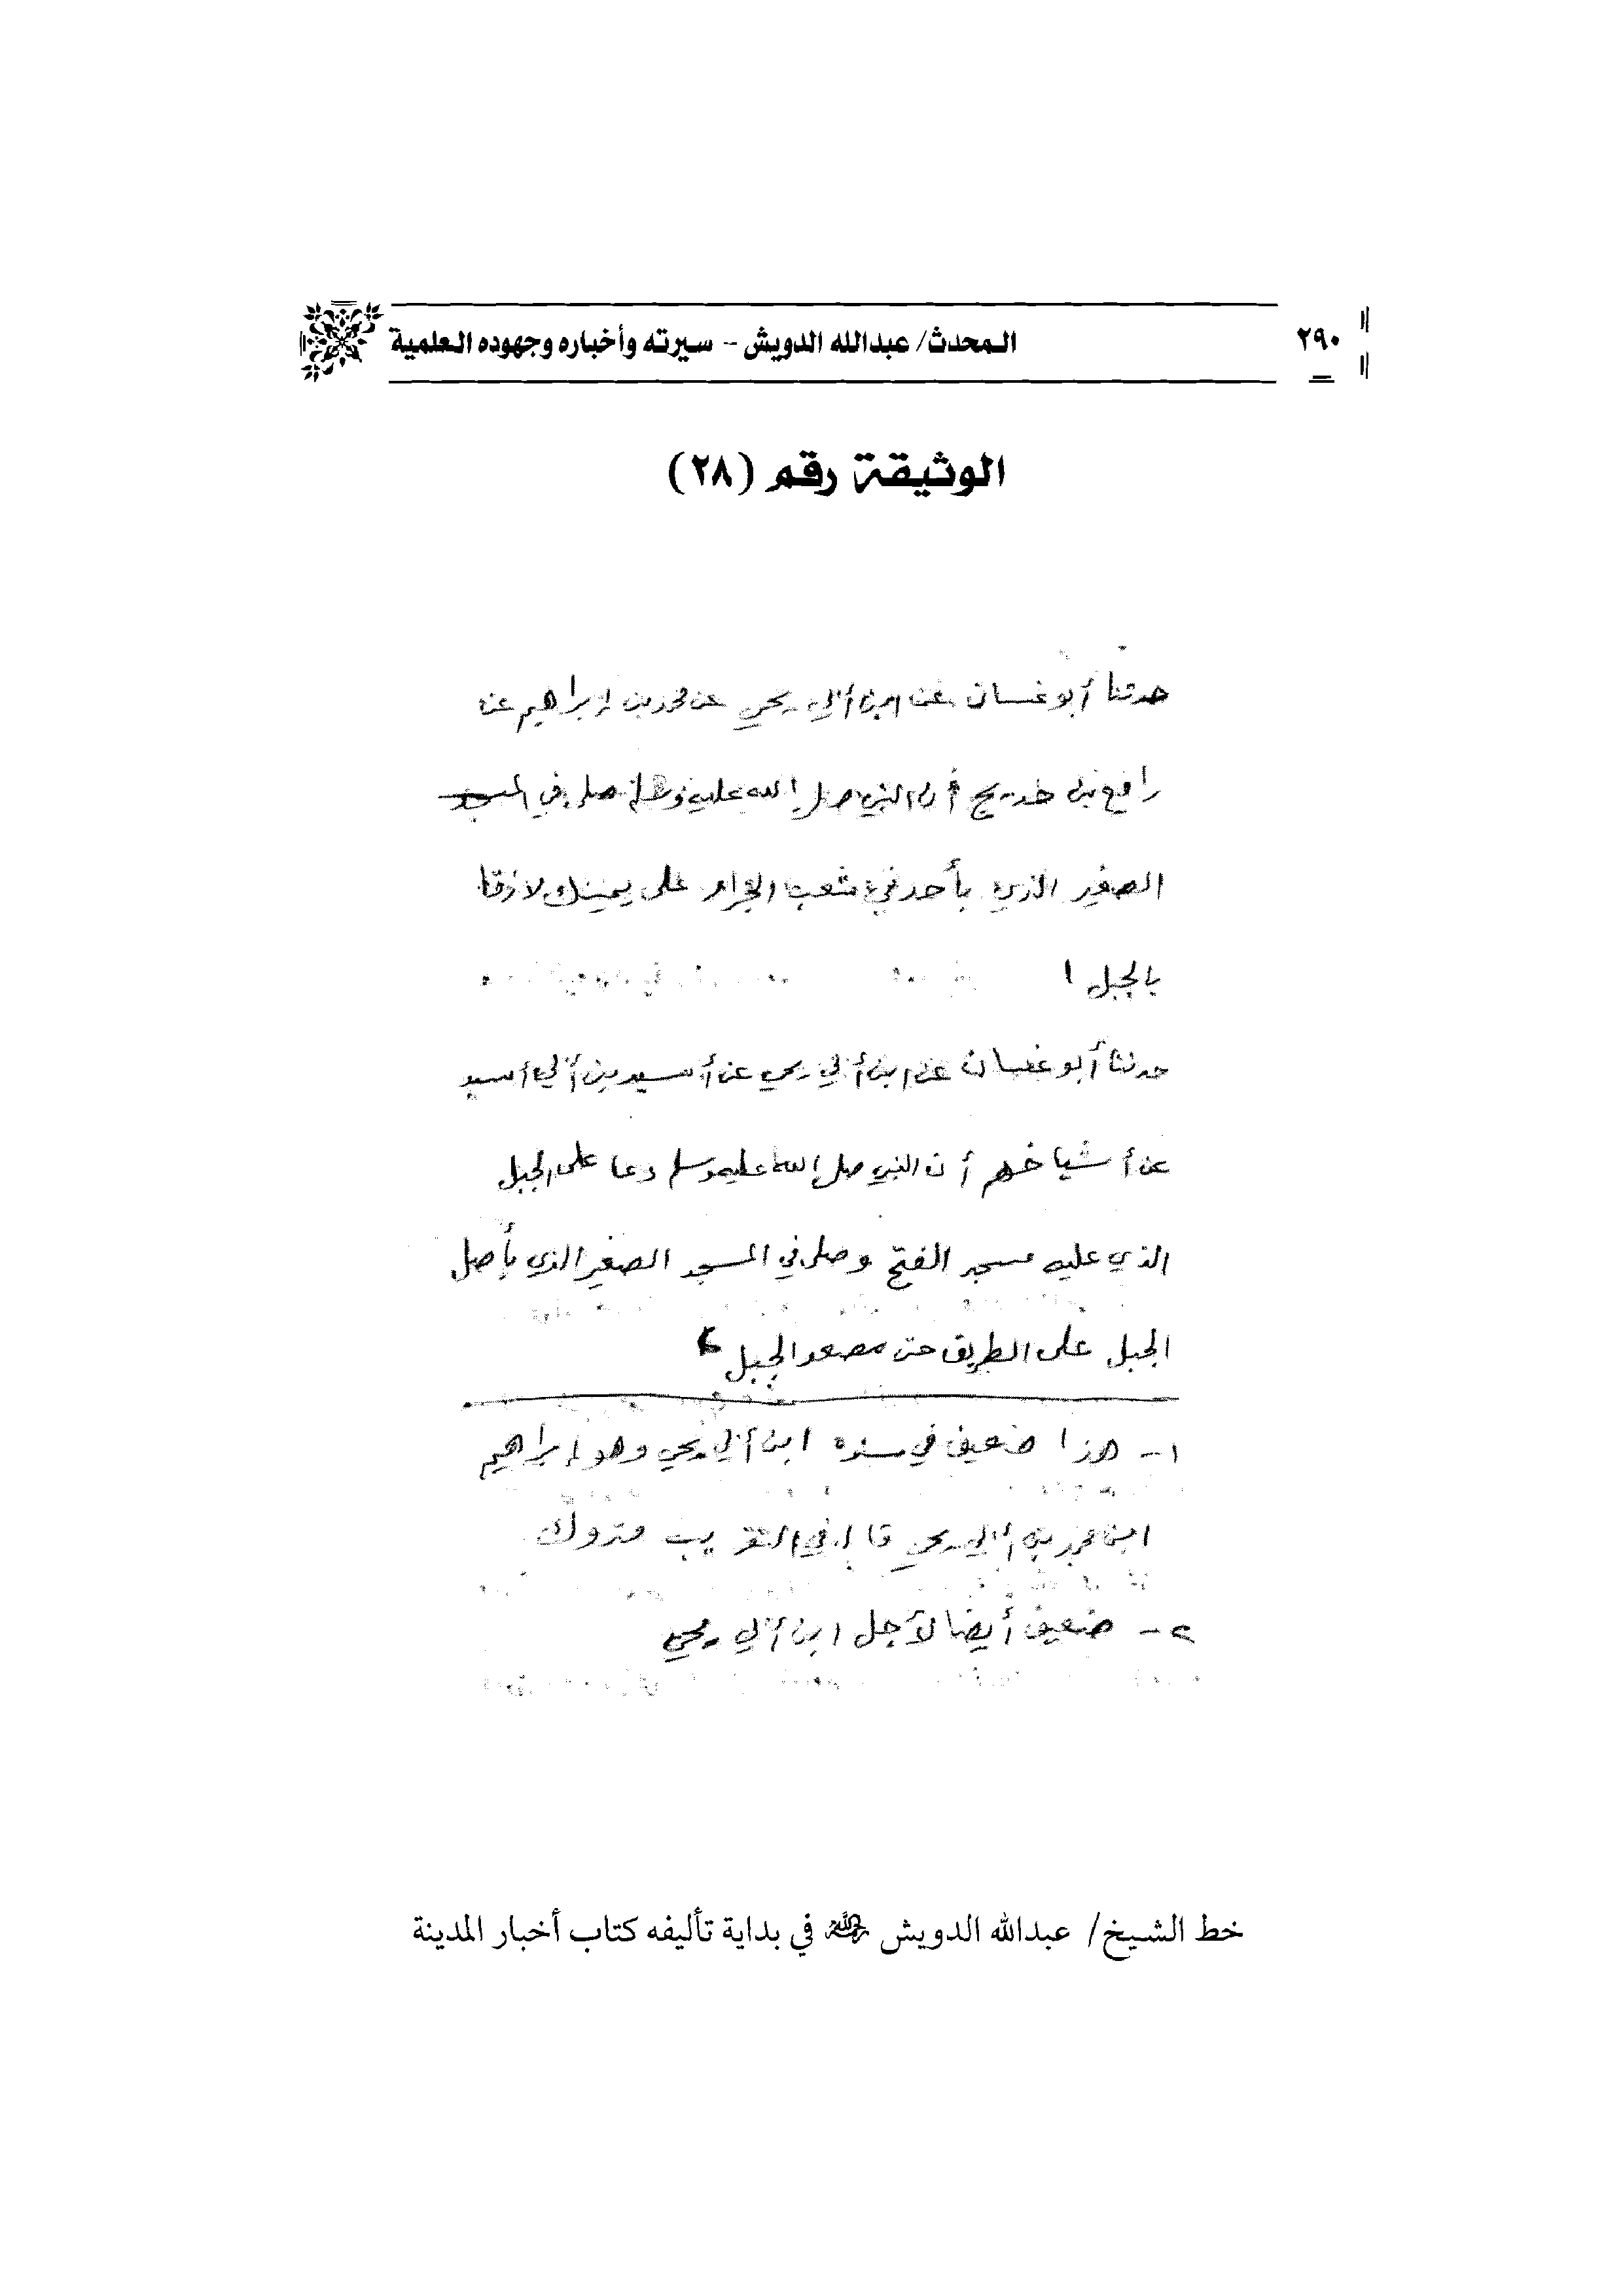 ٢٩٠
المحدث/ عبدالله الدويش - سيرته وأخباره وجهوده العلمية
الوثيقة رقم (٢٨)
حدثنا أبو غسان عن ابن أبي يحي عن محمد بن إبراهيم عن
رافع بن خديج أن النبي صلى الله عليه وسلم صلى في المسجد
الصغير الذي بأحد في شعب الجرار على يمينك لازقا
بالجبل ١
حدثنا أبو غسان عن ابن أبي يحي عن أسيد بن أبي أسيد
عن أشياخهم أن النبي صلى الله عليه وسلم دعا على الجبل
الذي عليه مسجد الفتح وصلى في المسجد الصغير الذي بأصل
الجبل على الطريق حتى مصعد الجبل ٢
١- هذا ضعيف في سنده ابن أبي يحي وهو إبراهيم
ابن محمد بن أبي يحي قال في التقريب متروك
٢- ضعيف أيضا لأجل ابن أبي يحي
خط الشيخ/ عبدالله الدويش رحمه الله في بداية تأليفه كتاب أخبار المدينة